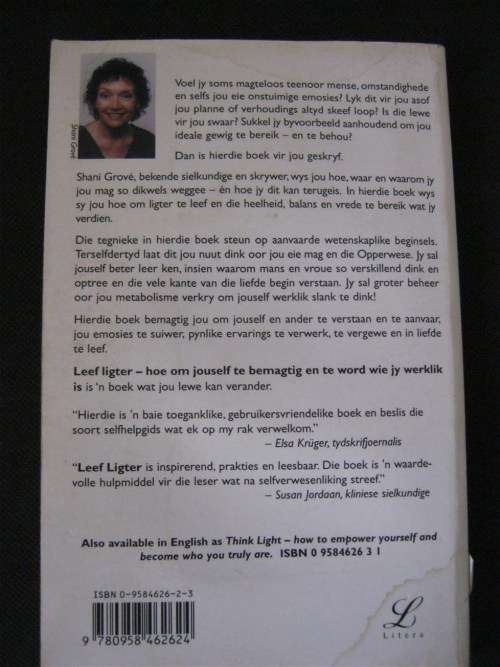 Shani Grové
Voel jy soms magteloos teenoor mense, omstandighede
en selfs jou eie onstuimige emosies? Lyk dit vir jou asof
jou planne of verhoudings altyd skeef loop? Is die lewe
vir jou swaar? Sukkel jy byvoorbeeld aanhoudend om jou
ideale gewig te bereik – en te behou?
Dan is hierdie boek vir jou geskryf.
Shani Grové, bekende sielkundige en skrywer, wys jou hoe, waar en waarom jy
jou mag so dikwels weggee – én hoe jy dit kan terugeis. In hierdie boek wys
sy jou hoe om ligter te leef en die heelheid, balans en vrede te bereik wat jy
verdien.
Die tegnieke in hierdie boek steun op aanvaarde wetenskaplike beginsels.
Terselfdertyd laat dit jou nuut dink oor jou eie mag en die Opperwese. Jy sal
jouself beter leer ken, insien waarom mans en vroue so verskillend dink en
optree en die vele kante van die liefde begin verstaan. Jy sal groter beheer
oor jou metabolisme verkry om jouself werklik slank te dink!
Hierdie boek bemagtig jou om jouself en ander te verstaan en te aanvaar,
jou emosies te suiwer, pynlike ervarings te verwerk, te vergewe en in liefde
te leef.
Leef ligter – hoe om jouself te bemagtig en te word wie jy werklik
is is 'n boek wat jou lewe kan verander.
"Hierdie is 'n baie toeganklike, gebruikersvriendelike boek en beslis die
soort selfhelpgids wat ek op my rak verwelkom."
– Elsa Krüger, tydskrifjoernalis
"Leef Ligter is inspirerend, prakties en leesbaar. Die boek is 'n waarde-
volle hulpmiddel vir die leser wat na selfverwesenliking streef."
– Susan Jordaan, kliniese sielkundige
Also available in English as Think Light – how to empower yourself and
become who you truly are. ISBN 0 9584626 3 1
ISBN 0-9584626-2-3
9 780958 462624
L
Litera